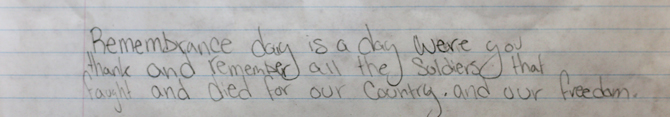 Remembrance day is a day were you
thank and remember all the Soldiers that
faught and died for our Country. and our freedom.